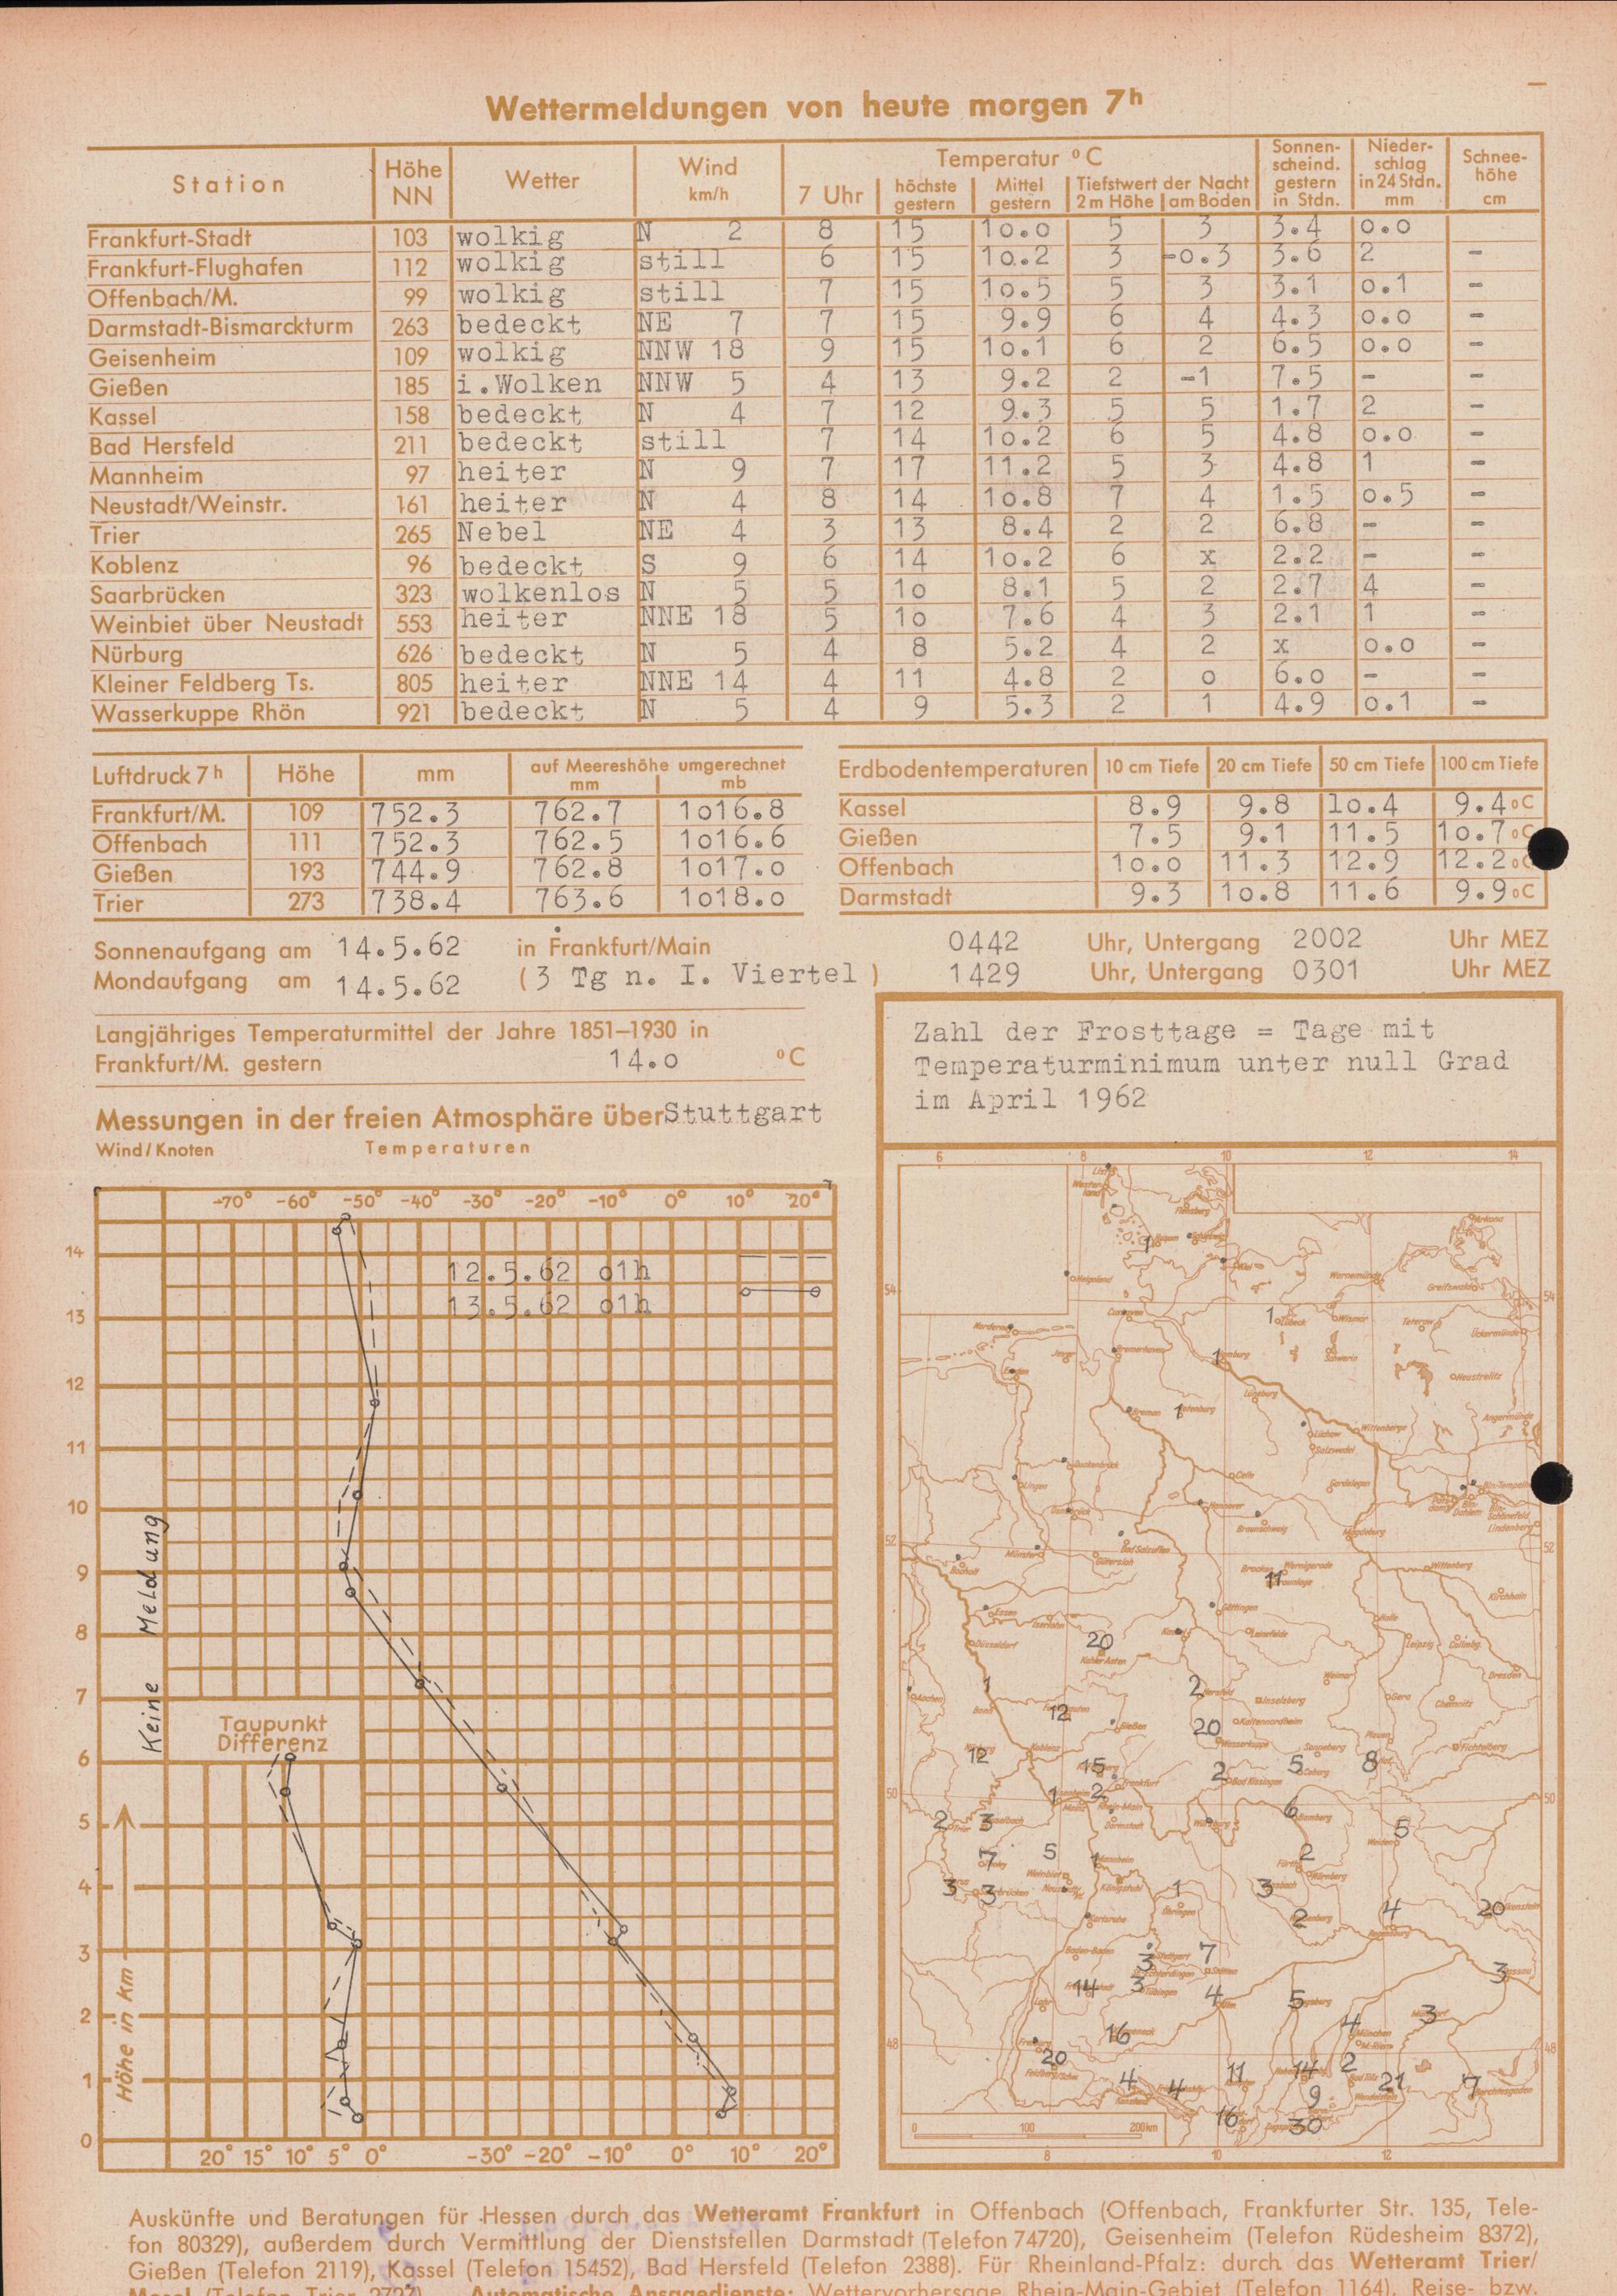 Wettermeldungen von heute morgen 7h
Station Höhe NN Wetter Wind km/h Temperatur °C Sonnen-scheind. gestern in Stdn. Nieder-schlag in 24 Stdn. mm Schnee-höhe cm
7 Uhr höchste gestern Mittel gestern Tiefstwert der Nacht 2 m Höhe am Boden
Frankfurt-Stadt 103 wolkig N 2 8 15 10.0 5 3 3.4 0.0
Frankfurt-Flughafen 112 wolkig still 6 15 10.2 3 -0.3 3.6 2 -
Offenbach/M. 99 wolkig still 7 15 10.5 5 3 3.1 0.1 -
Darmstadt-Bismarckturm 263 bedeckt NE 7 7 15 9.9 6 4 4.3 0.0 -
Geisenheim 109 wolkig NNW 18 9 15 10.1 6 2 6.5 0.0 -
Gießen 185 i.Wolken NNW 5 4 13 9.2 2 -1 7.5 - -
Kassel 158 bedeckt N 4 7 12 9.3 5 5 1.7 2 -
Bad Hersfeld 211 bedeckt still 7 14 10.2 6 5 4.8 0.0 -
Mannheim 97 heiter N 9 7 17 11.2 5 3 4.8 1 -
Neustadt/Weinstr. 161 heiter N 4 8 14 10.8 7 4 1.5 0.5 -
Trier 265 Nebel NE 4 3 13 8.4 2 2 6.8 - -
Koblenz 96 bedeckt S 9 6 14 10.2 6 x 2.2 - -
Saarbrücken 323 wolkenlos N 5 5 10 8.1 5 2 2.7 4 -
Weinbiet über Neustadt 553 heiter NNE 18 5 10 7.6 4 3 2.1 1 -
Nürburg 626 bedeckt N 5 4 8 5.2 4 2 x 0.0 -
Kleiner Feldberg Ts. 805 heiter NNE 14 4 11 4.8 2 0 6.0 - -
Wasserkuppe Rhön 921 bedeckt N 5 4 9 5.3 2 1 4.9 0.1 -
Luftdruck 7h Höhe mm auf Meereshöhe umgerechnet mm mb
Frankfurt/M. 109 752.3 762.7 1016.8
Offenbach 111 752.3 762.5 1016.6
Gießen 193 744.9 762.8 1017.0
Trier 273 738.4 763.6 1018.0
Erdbodentemperaturen 10 cm Tiefe 20 cm Tiefe 50 cm Tiefe 100 cm Tiefe
Kassel 8.9 9.8 10.4 9.4 °C
Gießen 7.5 9.1 11.5 10.7 °C
Offenbach 10.0 11.3 12.9 12.2 °C
Darmstadt 9.3 10.8 11.6 9.9 °C
Sonnenaufgang am 14.5.62 in Frankfurt/Main 0442 Uhr, Untergang 2002 Uhr MEZ
Mondaufgang am 14.5.62 (3 Tg n. I. Viertel) 1429 Uhr, Untergang 0301 Uhr MEZ
Langjähriges Temperaturmittel der Jahre 1851–1930 in
Frankfurt/M. gestern 14.0 °C
Messungen in der freien Atmosphäre über Stuttgart
Wind/Knoten Temperaturen
-70° -60° -50° -40° -30° -20° -10° 0° 10° 20°
12.5.62 01h
13.5.62 01h
14
13
12
11
10
9
8
7
6
5
4
3
2
1
0
Keine Meldung
Taupunkt
Differenz
Höhe in km
20° 15° 10° 5° 0° -30° -20° -10° 0° 10° 20°
Zahl der Frosttage = Tage mit
Temperaturminimum unter null Grad
im April 1962
6 8 10 12 14
54 54
52 52
50 50
48 48
1
1
1
1
11
20
1 2
12 20
12 15 2 5 8
1 2
2 3 6 5
7 5 1 2
3 3 1 3
2 4 20
3 7 3
14 3 4 5 3
16 4
20 11 14 2 21 7
4 4 9
16 30
0 100 200 km
8 10 12
Auskünfte und Beratungen für Hessen durch das Wetteramt Frankfurt in Offenbach (Offenbach, Frankfurter Str. 135, Tele-
fon 80329), außerdem durch Vermittlung der Dienststellen Darmstadt (Telefon 74720), Geisenheim (Telefon Rüdesheim 8372),
Gießen (Telefon 2119), Kassel (Telefon 15452), Bad Hersfeld (Telefon 2388). Für Rheinland-Pfalz: durch das Wetteramt Trier/
Mosel (Telefon Trier 2727). Automatische Ansagedienste: Wettervorhersage Rhein-Main-Gebiet (Telefon 1164), Reise- bzw.